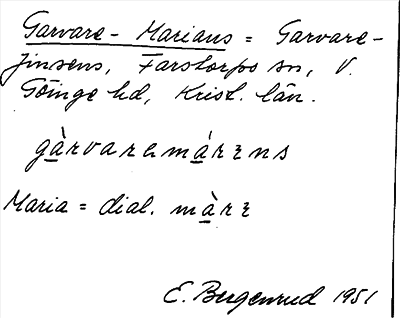 Garvare - Marians = Garvare-
Jinsens, Farstorps sn, V.
Göinge hd, Krist. län.
gàrvaremàrɛns
Maria = dial. màrɛ
E. Bergenrud 1951